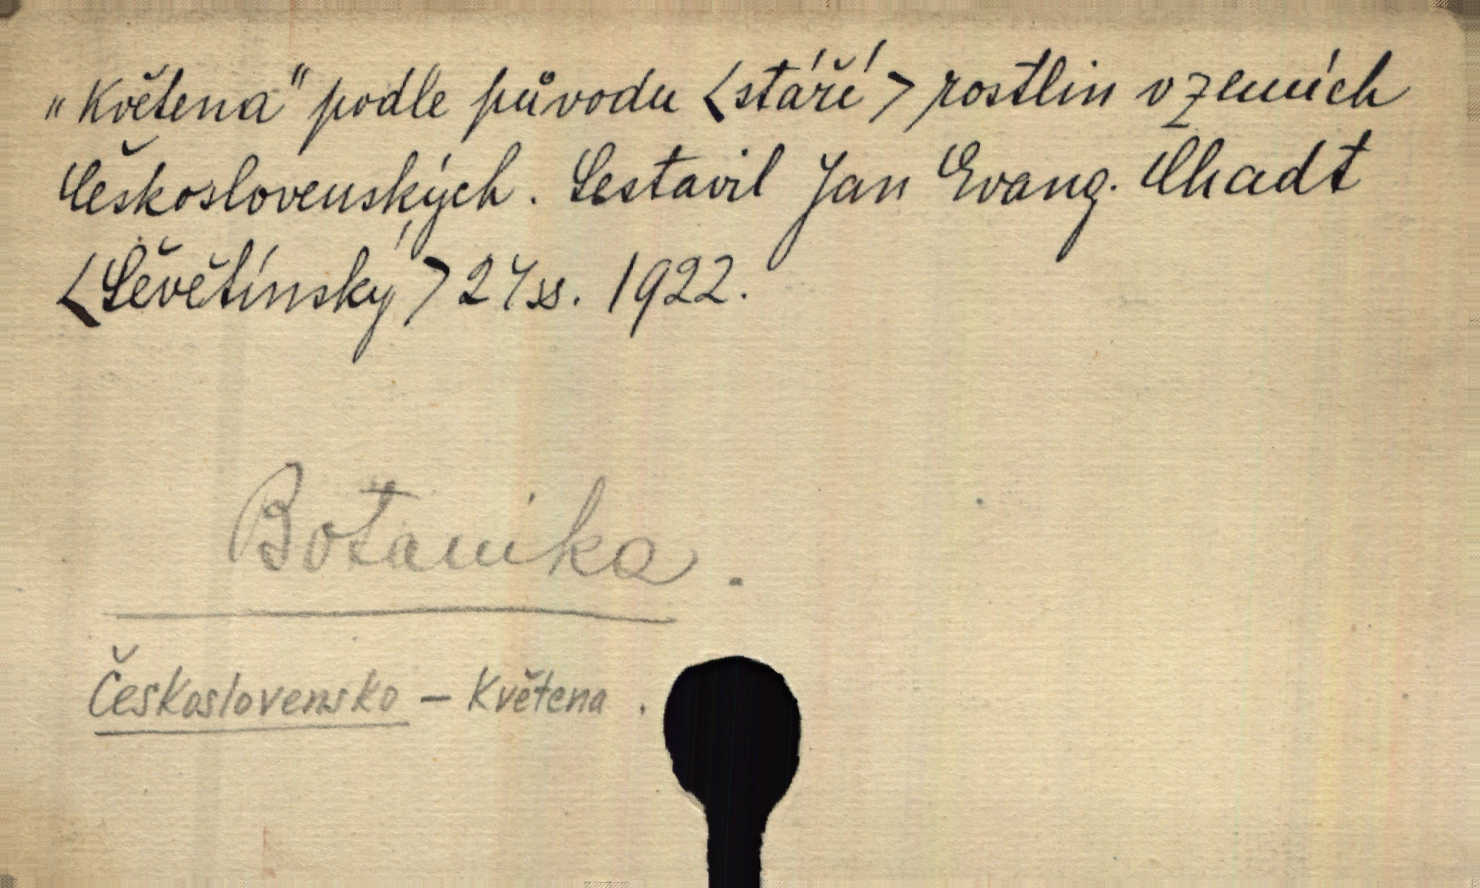 „Květena" podle původu <stáří> rostlin v zemích
Československých. Sestavil Jan Evang. Chadt
<Ševětínský> 24 ss. 1922.
Botanika.
Československo - Květena.